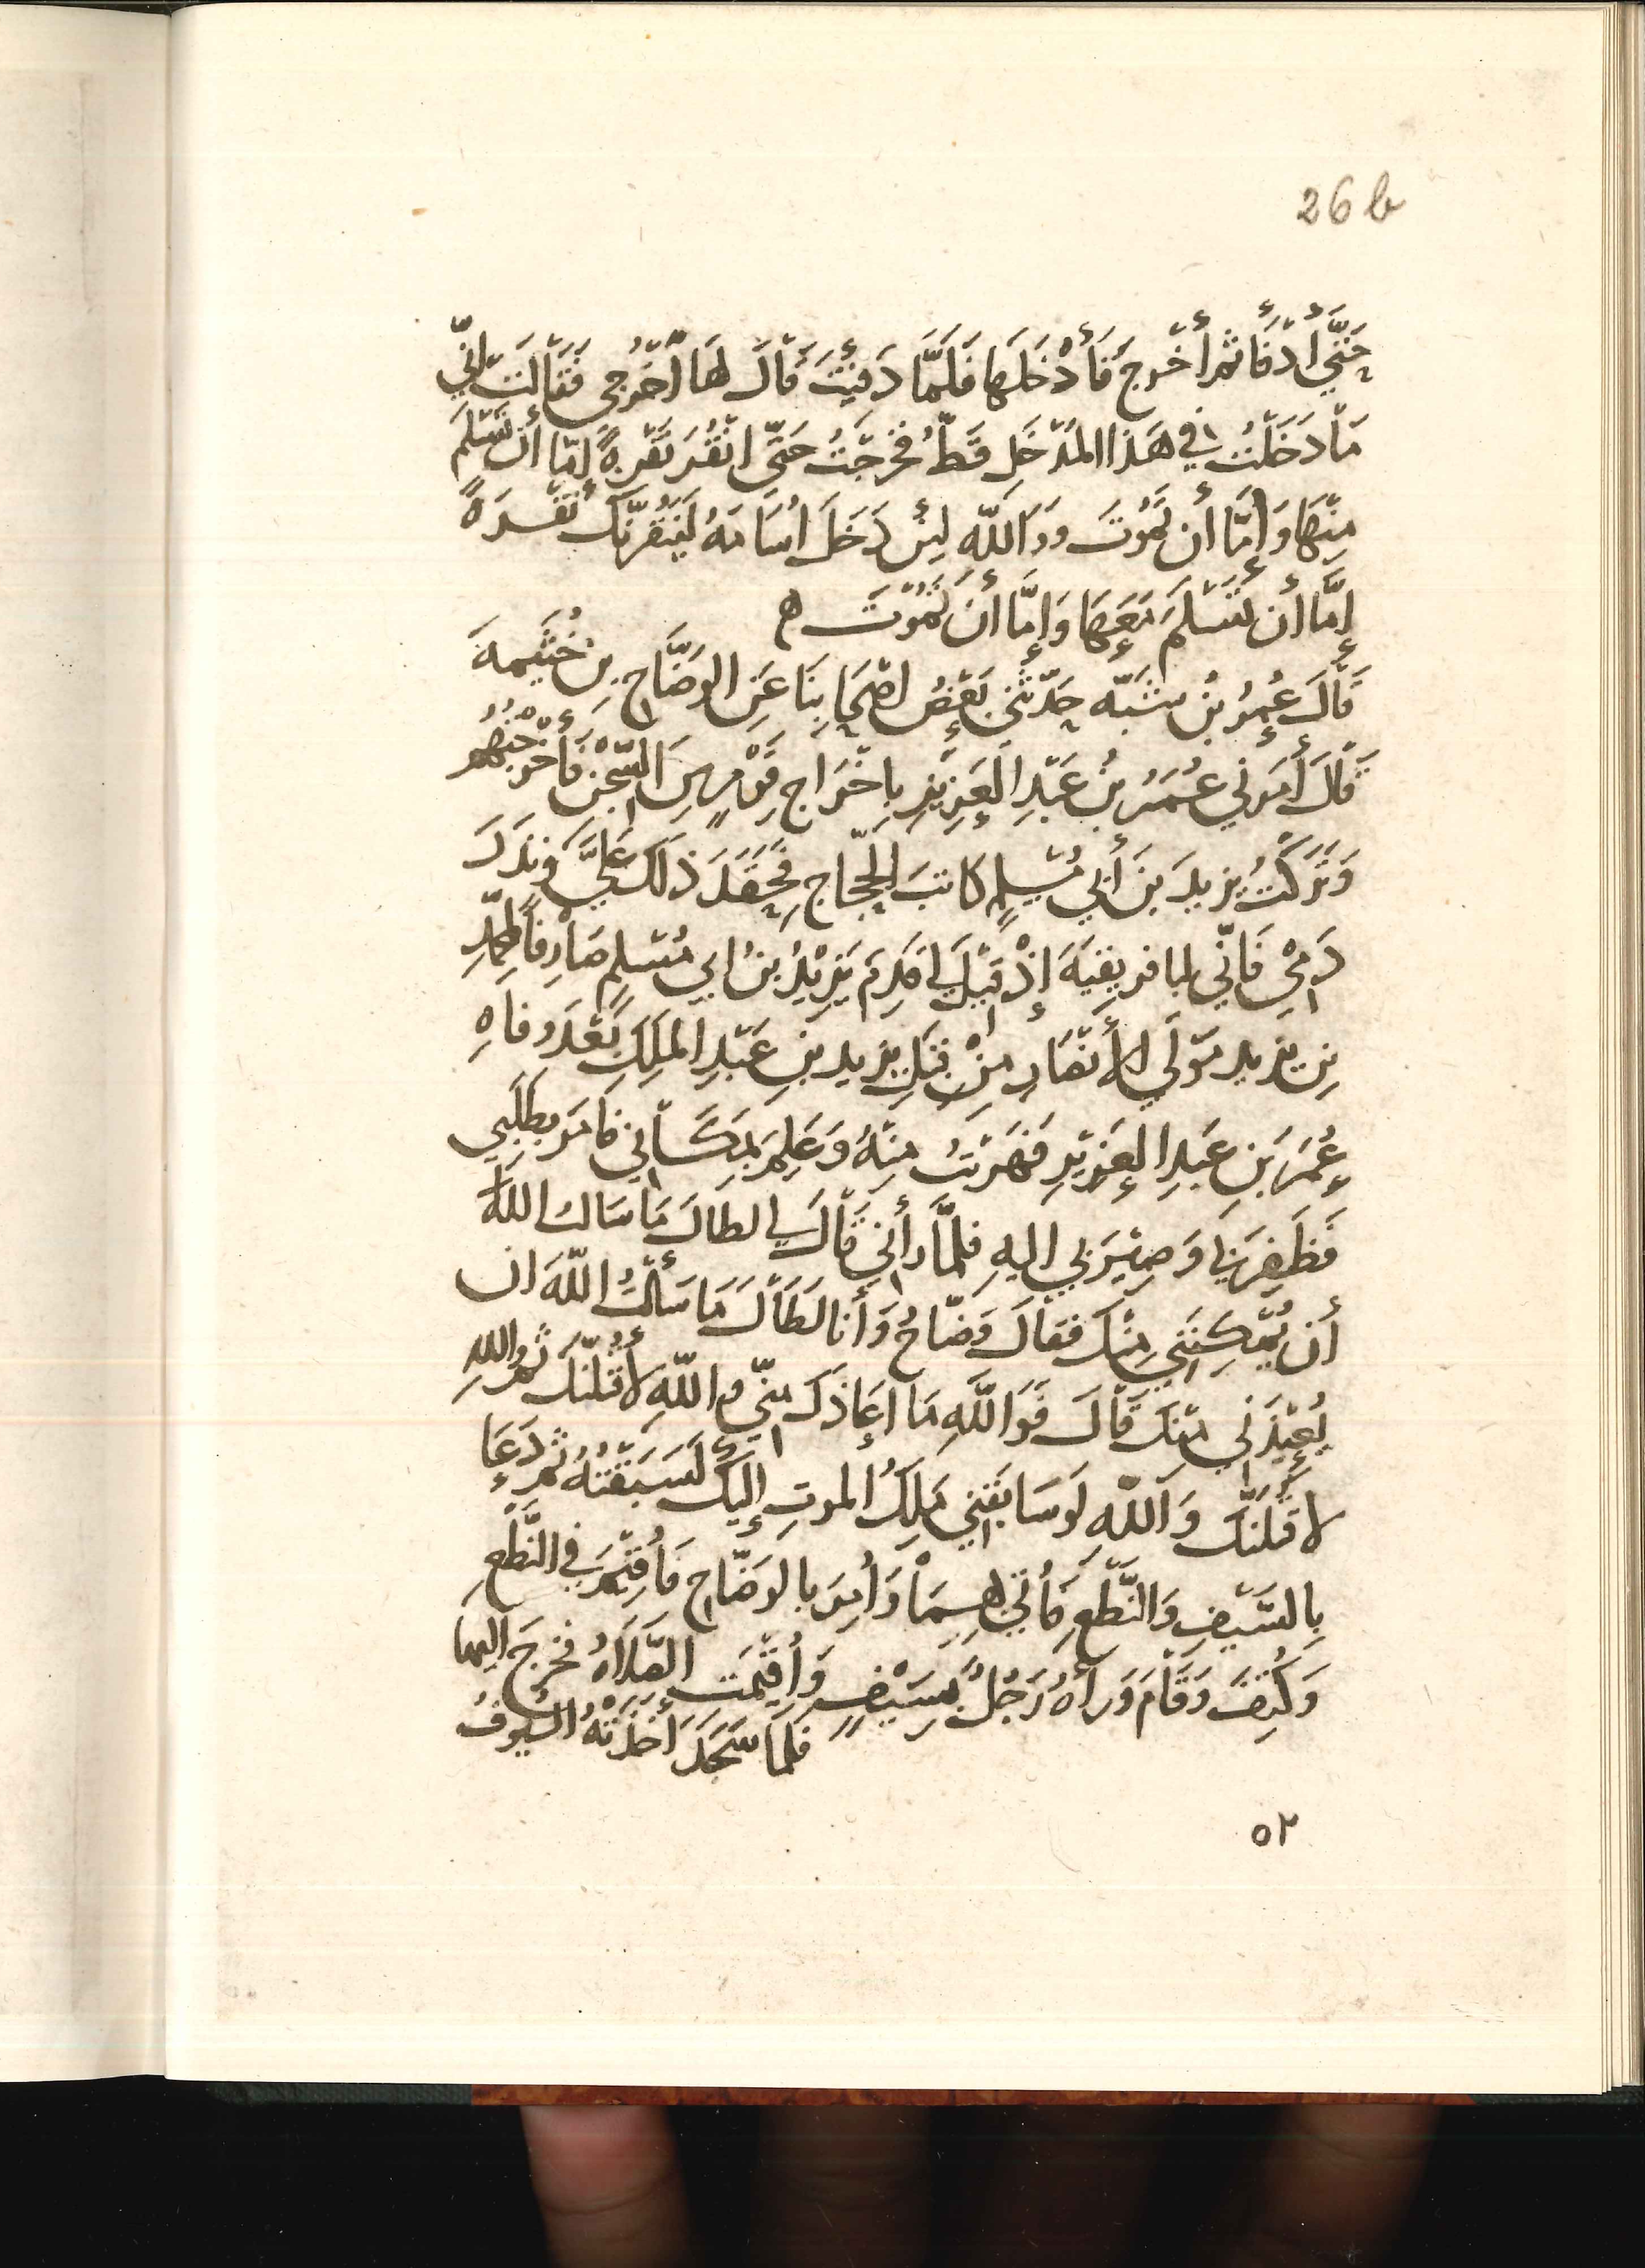 26 b
حَتَّي أَدْفَأَ ثم أَخْرجَ فَأَدْخَلَها فَلَمَّا دَفِيَتْ قَالَ لَهَا أُخْرُجِي فَقَالَتْ انّي
مَا دَخَلْتُ في هَذا المَدْخَلِ قَطُّ فَخرَجْتُ حَتَّى انْقُرَ نَقْرةً إمّا أن تَسْلَمَ
مِنْهَا وَإمَّا أن تَمُوتَ وَوَاللّهِ لَئِنْ دَخَلَ اُسَامَهُ لَيَنْقُرَنَّكَ نَقْرَةً
إمَّا أن تَسْلَمَ مَعَهَا وَإمَّا أَن تَمُوْتَ ه
قَالَ عُمَرُ بْنُ شَبَّه حَدّثَنِي بَعْضُ اصْحَابِنَا عَنِ الوَضَّاحِ بِن خُثَيمهَ
قَالَ أَمَرَني عُمَرُ بْنُ عَبْدِ العَزِيْزِ بِاخْرَاجِ قَوْمٍ مِنَ السِّجْنِ فَأخْرَجْتُهُمْ
وَتَرَكْتُ يزيدَ بنَ أبي مُسْلِمٍ كَاتبَ الحَجّاجِ فَحَقَدَ ذَلكَ عَلَيَّ وَنَذَرَ
دَمِي فَإنّي بافريقيَةَ إذْ قيْلَ لي قَدِمَ يَزِيْدُ بنُ ابي مُسْلِمٍ صَارفًا لمحمّدِ
بنِ يزيد مَوْلَي الأَنْصَارِ مِنْ قِبَلِ يزيد بنِ عَبْدِ المَلِكِ بَعْدَ وفاهِ
عُمَرَ بَنِ عَبْدِ العَزِيْزِ فَهَرَبْتُ مِنْهُ وَعَلِمَ بمَكَانِي فَامَرَ بطَلَبِي
فَظَفِرَ بي وَصِيْرَ بي اليهِ فلمَّا رأني قَالَ لي لطالَ مَا سَالتُ اللهَ
أن يُمْكِنَنِي مِنْكَ فقالَ وَضّاحُ وَأنا لَطَالَ مَا سَألتُ اللّهَ ان
يُعِيْذَني مِنْكَ قَالَ فَوَاللَّهِ مَا اعَاذَكَ مِنّي واللّهِ لأقْتُلَنّكَ ثم واللهِ
لاقتُلَنّكَ وَاللّهِ لَو سَابَقَنِي مَلكُ الموتِ إليكَ لَسَبَقْتُهُ ثم دَعَا
بِالسَّيْفِ وَالنَّطْعِ فَأُتِيَ بِهِمَا وَأمَرَ بالوَضّاحِ فَأُقِيْمَ في النَّطْعِ
وَكُتِفَ وَقَامَ وَرأهُ رَجُلٌ بِسَيْفٍ وَأُقِيْمَتِ الصَّلَاهُ فَخرجَ اليها
فلمَا سَجَدَ اَخَذَتْهُ السُّيُوفُ
٥٢